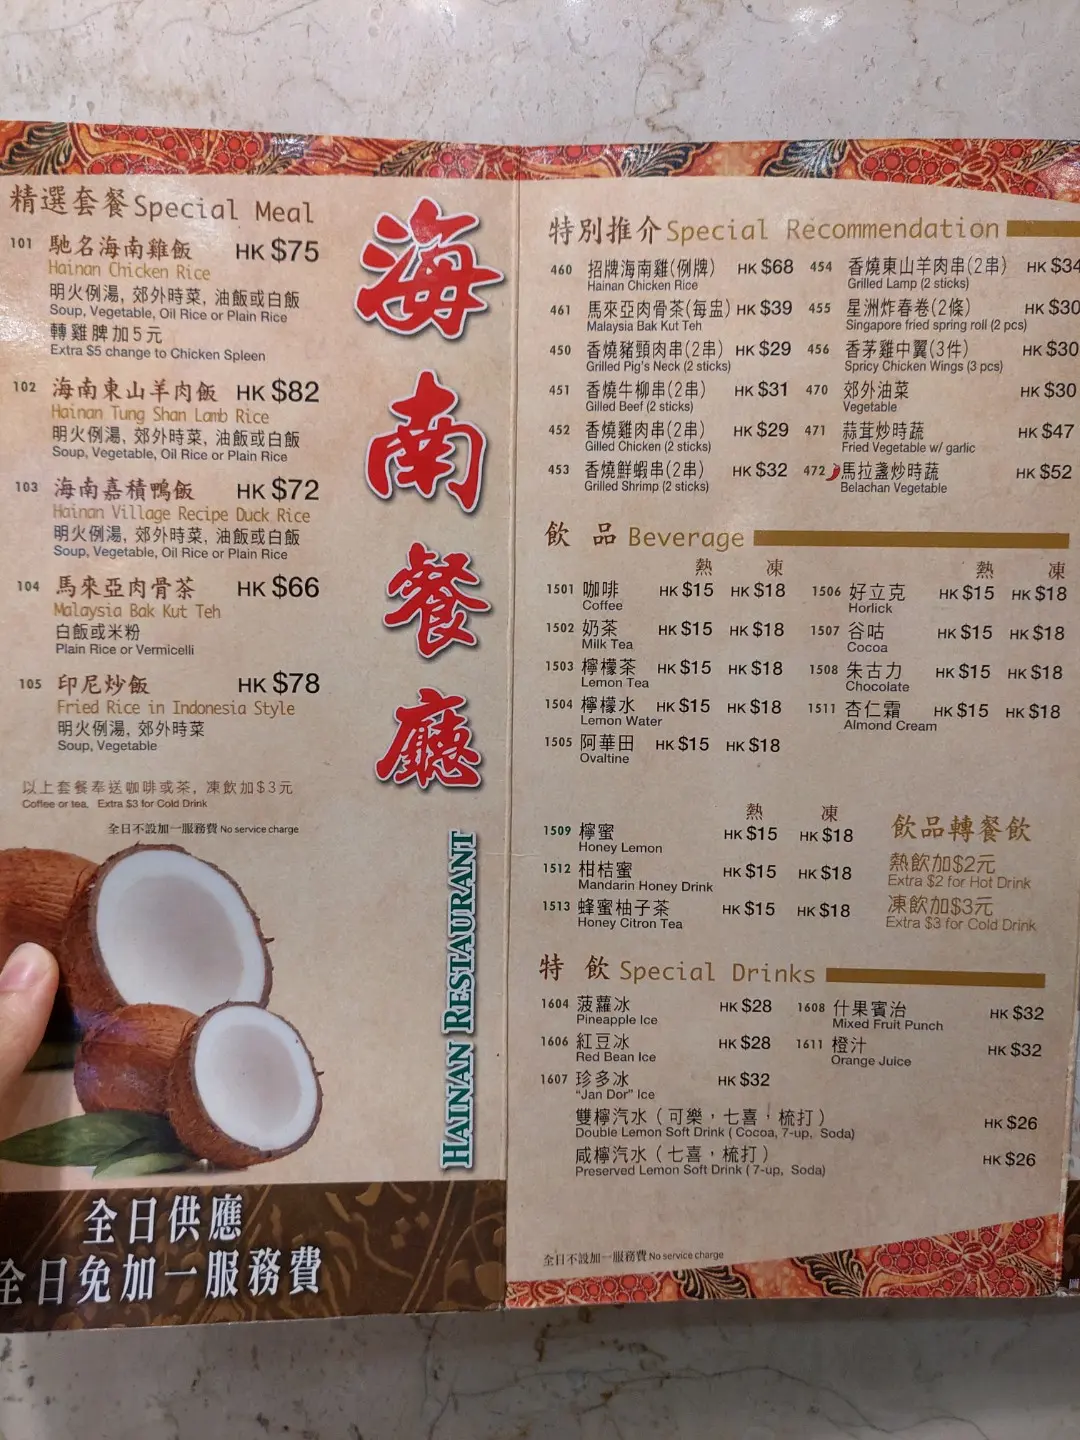 精選套餐 Special Meal
101 馳名海南雞飯 HK $75
Hainan Chicken Rice
明火例湯, 郊外時菜, 油飯或白飯
Soup, Vegetable, Oil Rice or Plain Rice
轉雞脾加5元
Extra $5 change to Chicken Spleen
102 海南東山羊肉飯 HK $82
Hainan Tung Shan Lamb Rice
明火例湯, 郊外時菜, 油飯或白飯
Soup, Vegetable, Oil Rice or Plain Rice
103 海南嘉積鴨飯 HK $72
Hainan Village Recipe Duck Rice
明火例湯, 郊外時菜, 油飯或白飯
Soup, Vegetable, Oil Rice or Plain Rice
104 馬來亞肉骨茶 HK $66
Malaysia Bak Kut Teh
白飯或米粉
Plain Rice or Vermicelli
105 印尼炒飯 HK $78
Fried Rice in Indonesia Style
明火例湯, 郊外時菜
Soup, Vegetable
以上套餐奉送咖啡或茶, 凍飲加$3元
Coffee or tea, Extra $3 for Cold Drink
全日不設加一服務費 No service charge
海南餐廳
HAINAN RESTAURANT
全日供應
全日免加一服務費
特別推介 Special Recommendation
460 招牌海南雞(例牌) HK $68
Hainan Chicken Rice
461 馬來亞肉骨茶(每盅) HK $39
Malaysia Bak Kut Teh
450 香燒豬頸肉串(2串) HK $29
Grilled Pig's Neck (2 sticks)
451 香燒牛柳串(2串) HK $31
Gilled Beef (2 sticks)
452 香燒雞肉串(2串) HK $29
Gilled Chicken (2 sticks)
453 香燒鮮蝦串(2串) HK $32
Grilled Shrimp (2 sticks)
454 香燒東山羊肉串(2串) HK $34
Grilled Lamp (2 sticks)
455 星洲炸春卷(2條) HK $30
Singapore fried spring roll (2 pcs)
456 香茅雞中翼(3件) HK $30
Spricy Chicken Wings (3 pcs)
470 郊外油菜 HK $30
Vegetable
471 蒜茸炒時蔬 HK $47
Fried Vegetable w/ garlic
472 馬拉盞炒時蔬 HK $52
Belachan Vegetable
飲 品 Beverage
熱 凍
1501 咖啡 HK $15 HK $18
Coffee
1502 奶茶 HK $15 HK $18
Milk Tea
1503 檸檬茶 HK $15 HK $18
Lemon Tea
1504 檸檬水 HK $15 HK $18
Lemon Water
1505 阿華田 HK $15 HK $18
Ovaltine
熱 凍
1506 好立克 HK $15 HK $18
Horlick
1507 谷咕 HK $15 HK $18
Cocoa
1508 朱古力 HK $15 HK $18
Chocolate
1511 杏仁霜 HK $15 HK $18
Almond Cream
熱 凍
1509 檸蜜 HK $15 HK $18
Honey Lemon
1512 柑桔蜜 HK $15 HK $18
Mandarin Honey Drink
1513 蜂蜜柚子茶 HK $15 HK $18
Honey Citron Tea
飲品轉餐飲
熱飲加$2元
Extra $2 for Hot Drink
凍飲加$3元
Extra $3 for Cold Drink
特 飲 Special Drinks
1604 菠蘿冰 HK $28
Pineapple Ice
1606 紅豆冰 HK $28
Red Bean Ice
1607 珍多冰 HK $32
"Jan Dor" Ice
1608 什果賓治 HK $32
Mixed Fruit Punch
1611 橙汁 HK $32
Orange Juice
雙檸汽水（可樂，七喜，梳打） HK $26
Double Lemon Soft Drink ( Cocoa, 7-up, Soda)
咸檸汽水（七喜，梳打） HK $26
Preserved Lemon Soft Drink ( 7-up, Soda)
全日不設加一服務費 No service charge